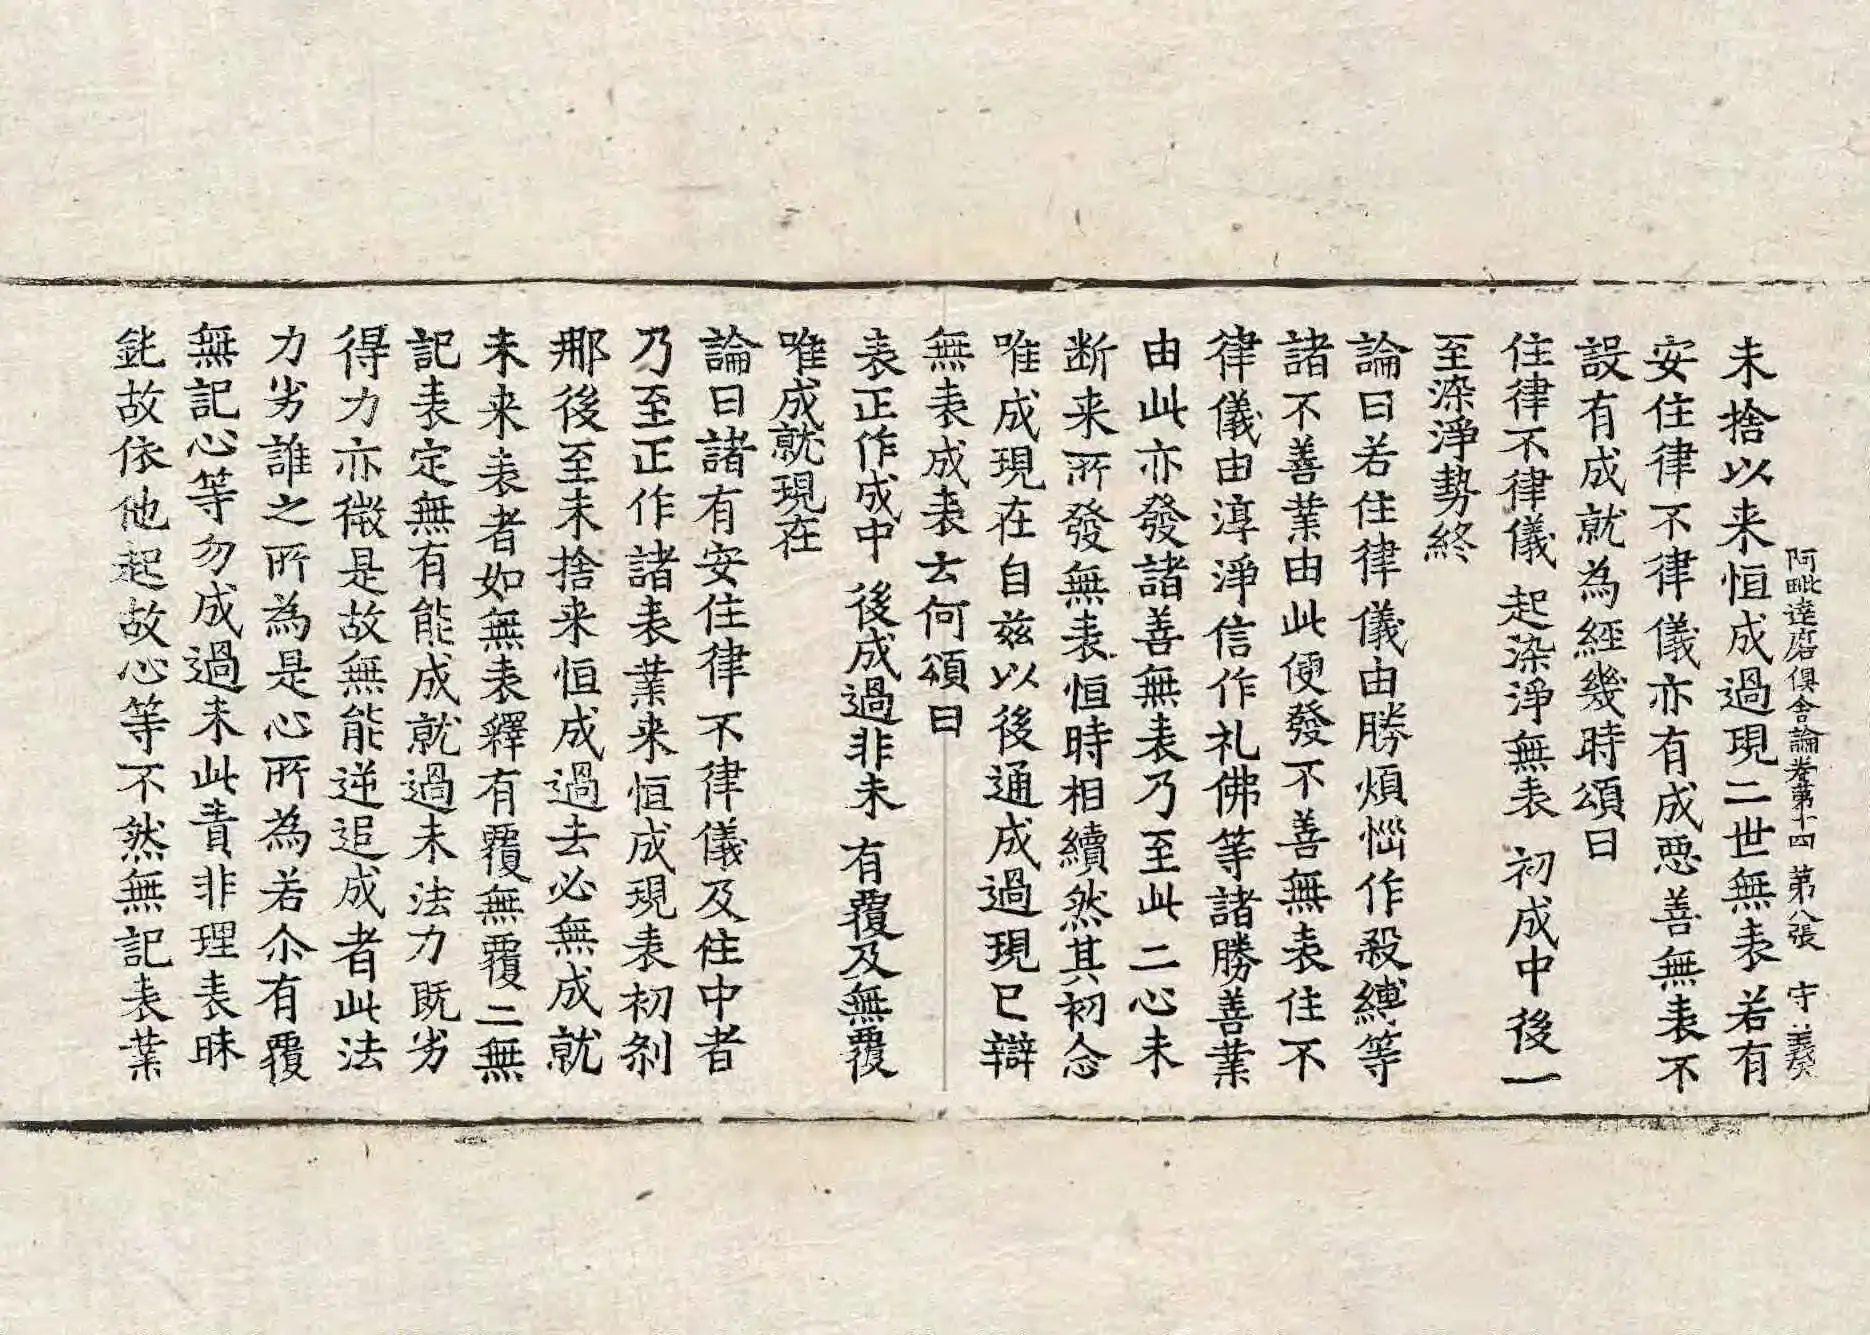 阿毗達磨俱舍論卷第十四 第八張 守
未捨以来恒成過現二世無表若有
安住律不律儀亦有成惡善無表不
設有成就為經幾時頌曰
住律不律儀 起染淨無表 初成中後一
至染淨勢終
論曰若住律儀由勝煩惱作殺縛等
諸不善業由此便發不善無表住不
律儀由淳淨信作礼佛等諸勝善業
由此亦發諸善無表乃至此二心未
断来所發無表恒時相續然其初念
唯成現在自玆以後通成過現已辯
無表成表云何頌曰
表正作成中 後成過非未 有覆及無覆
唯成就現在
論曰諸有安住律不律儀及住中者
乃至正作諸表業来恒成現表初剎
那後至未捨来恒成過去必無成就
未来表者如無表釋有覆無覆二無
記表定無有能成就過未法力既劣
得力亦微是故無能逆追成者此法
力劣誰之所為是心所為若尒有覆
無記心等勿成過未此責非理表昧
鈍故依他起故心等不然無記表業